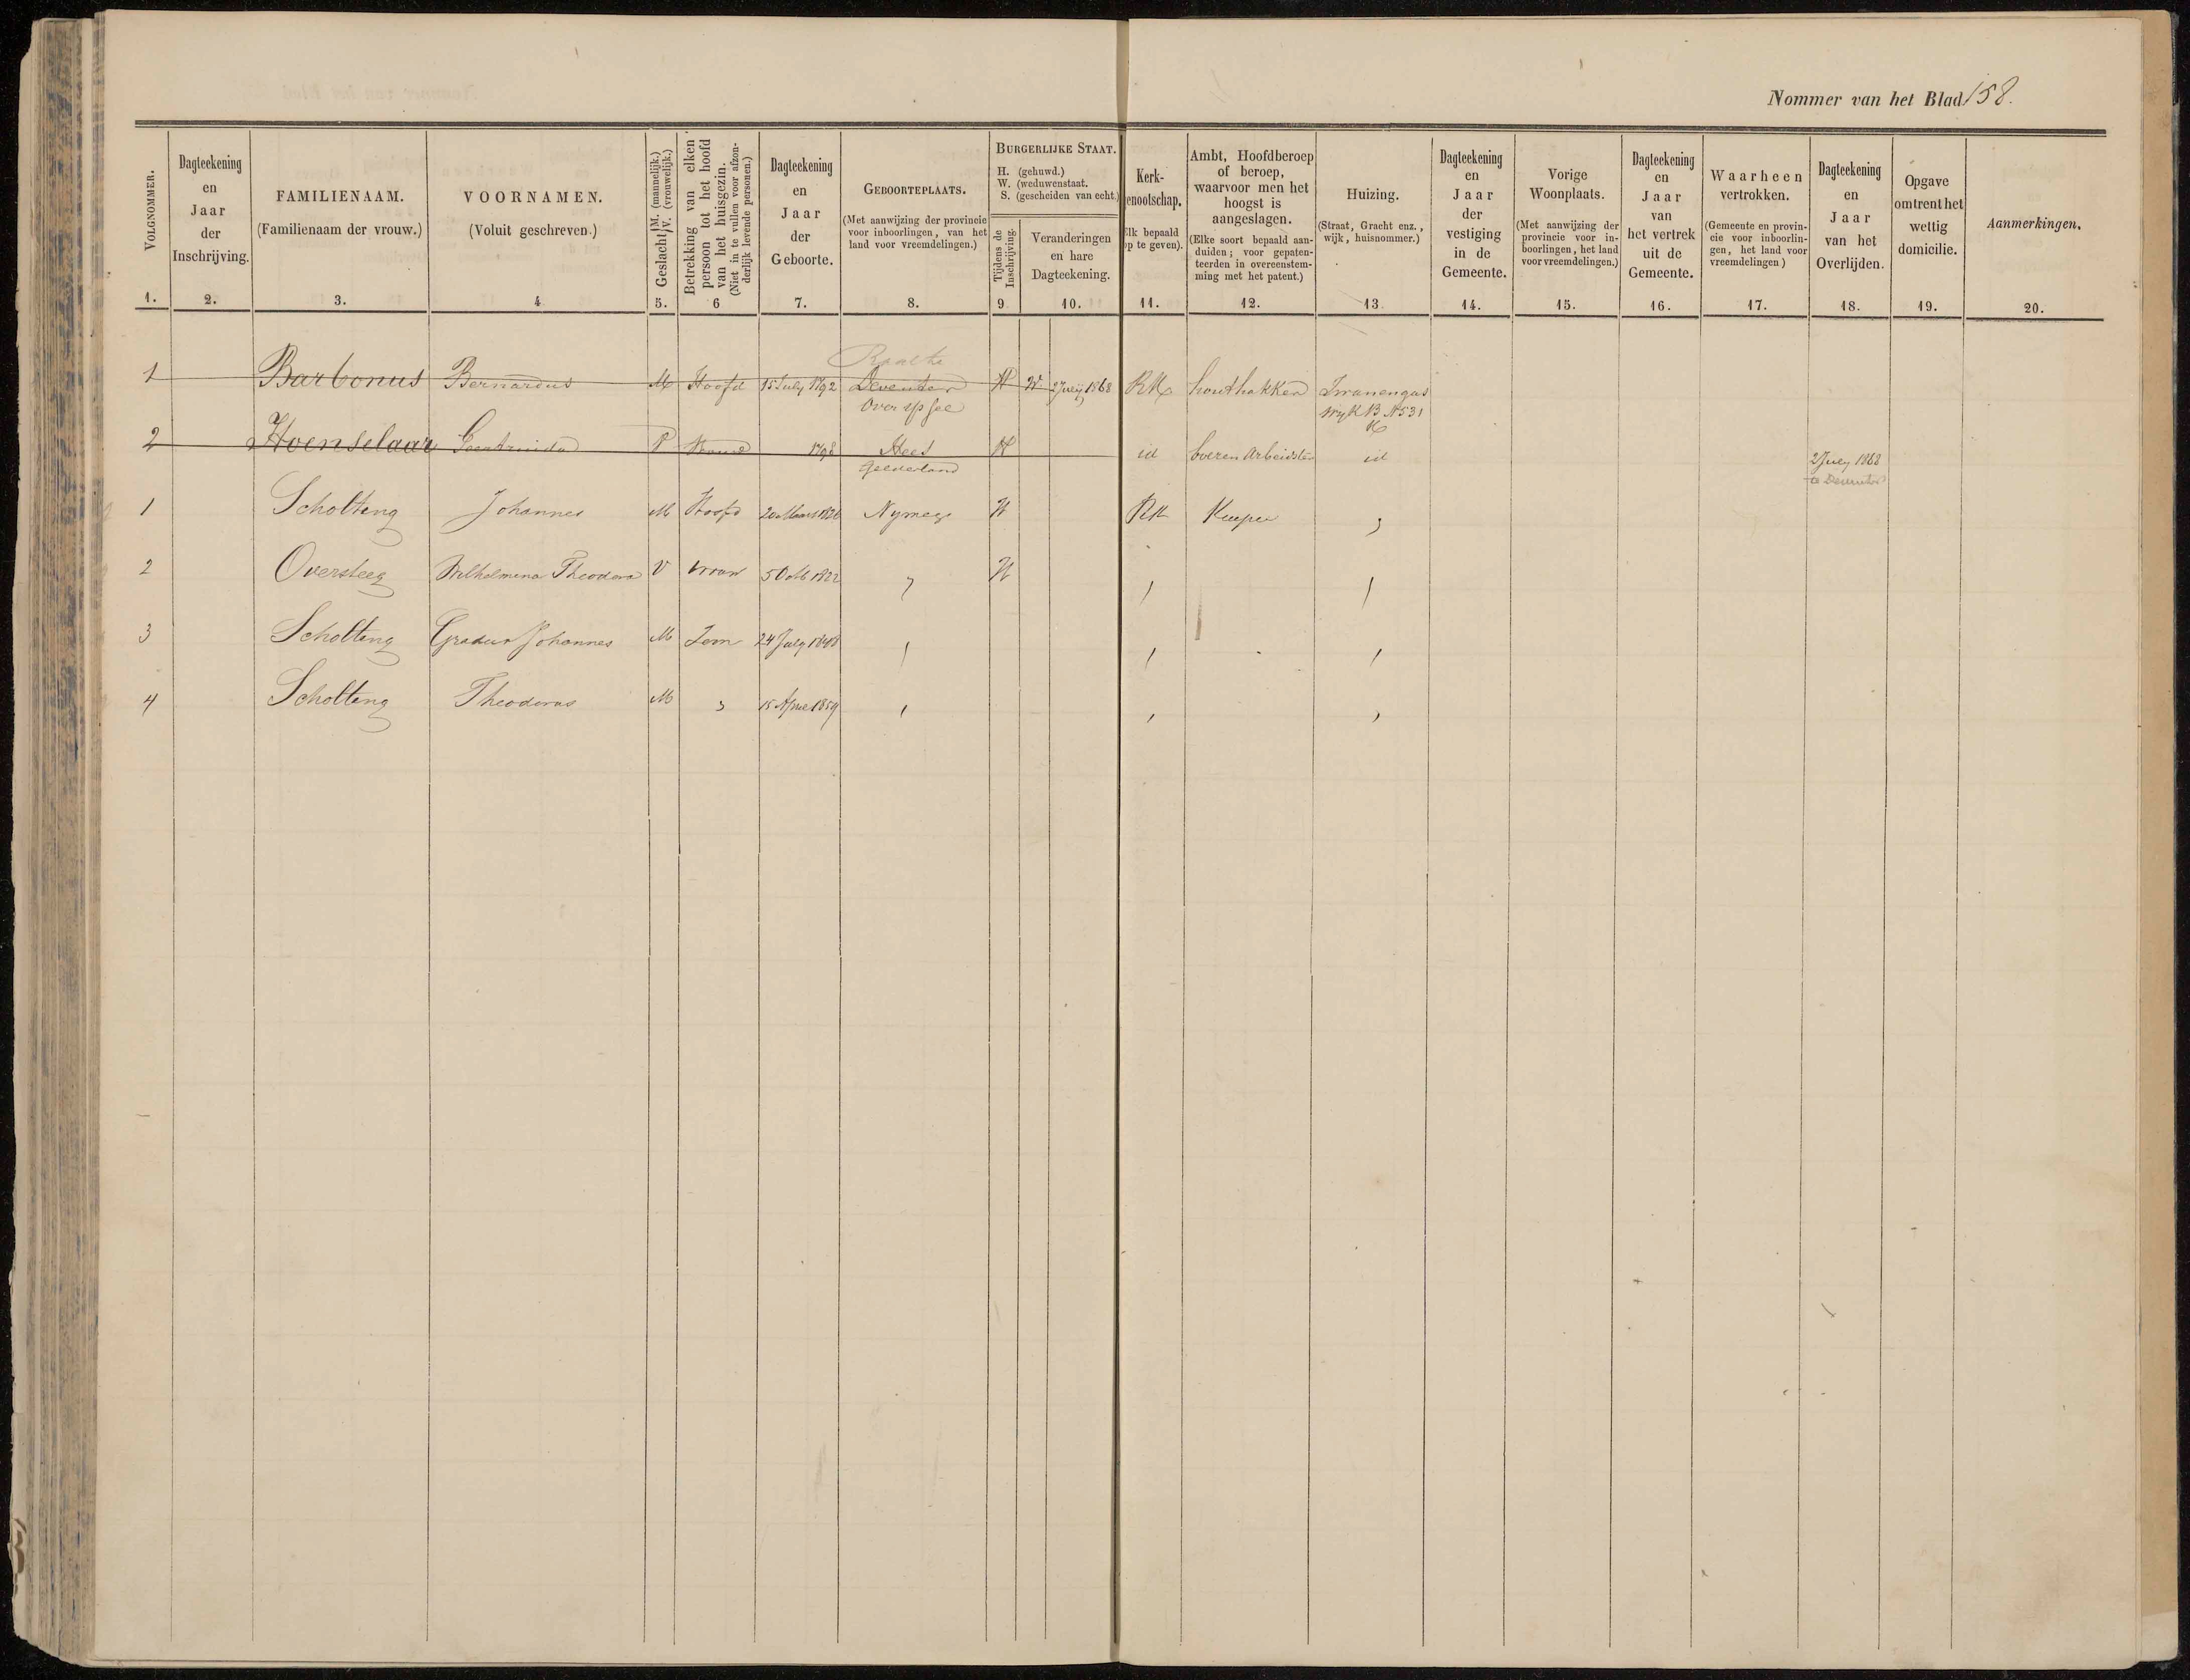 Nommer van het Blad 158.
VOLGNOMMER.
1.
Dagteekening
en
Jaar
der
Inschrijving.
2.
FAMILIENAAM.
(Familienaam der vrouw.)
3.
VOORNAMEN.
(Voluit geschreven.)
4
Geslacht M. (mannelijk.) V. (vrouwelijk.)
5.
Betrekking van elken
persoon tot het hoofd
van het huisgezin.
(Niet in te vullen voor afzon-
derlijk levende personen.)
6
Dagteekening
en
Jaar
der
Geboorte.
7.
GEBOORTEPLAATS.
(Met aanwijzing der provincie
voor inboorlingen, van het
land voor vreemdelingen.)
8.
BURGERLIJKE STAAT.
H. (gehuwd.)
W. (weduwenstaat.
S. (gescheiden van echt.)
Tijdens de
Inschrijving.
9
Veranderingen
en hare
Dagteekening.
10.
Kerk-
enootschap.
Elk bepaald
op te geven).
11.
Ambt, Hoofdberoep
of beroep,
waarvoor men het
hoogst is
aangeslagen.
(Elke soort bepaald aan-
duiden; voor gepaten-
teerden in overeenstem-
ming met het patent.)
12.
Huizing.
(Straat, Gracht enz.,
wijk, huisnommer.)
13.
Dagteekening
en
Jaar
der
vestiging
in de
Gemeente.
14.
Vorige
Woonplaats.
(Met aanwijzing der
provincie voor in-
boorlingen, het land
voor vreemdelingen.)
15.
Dagteekening
en
Jaar
van
het vertrek
uit de
Gemeente.
16.
Waarheen
vertrokken.
(Gemeente en provin-
cie voor inboorlin-
gen, het land voor
vreemdelingen)
17.
Dagteekening
en
Jaar
van het
Overlijden.
18.
Opgave
omtrent het
wettig
domicilie.
19.
Aanmerkingen.
20.
Raalte
1 Barbonus Bernardus M Hoofd 15 July 1792 Deventer H W 2 July 1868 RK houthakker
Overyssel Wyk B N 531
2 Hoenselaar Geertruida Vrouw 1798 Hees H id boeren Arbeidster id 2 July 1868
Gelderland te Deventer
1 Scholting Johannes M Hoofd 20 Maart 1826 Nymege H RK Kuiper "
2 Oversteeg Wilhelmina Theodora V vrouw 5 Oct 1822 " H " "
3 Scholting Gradus Johannes M Zoon 24 July 1848 " " "
4 Scholting Theodorus M " 15 April 1859 " " "